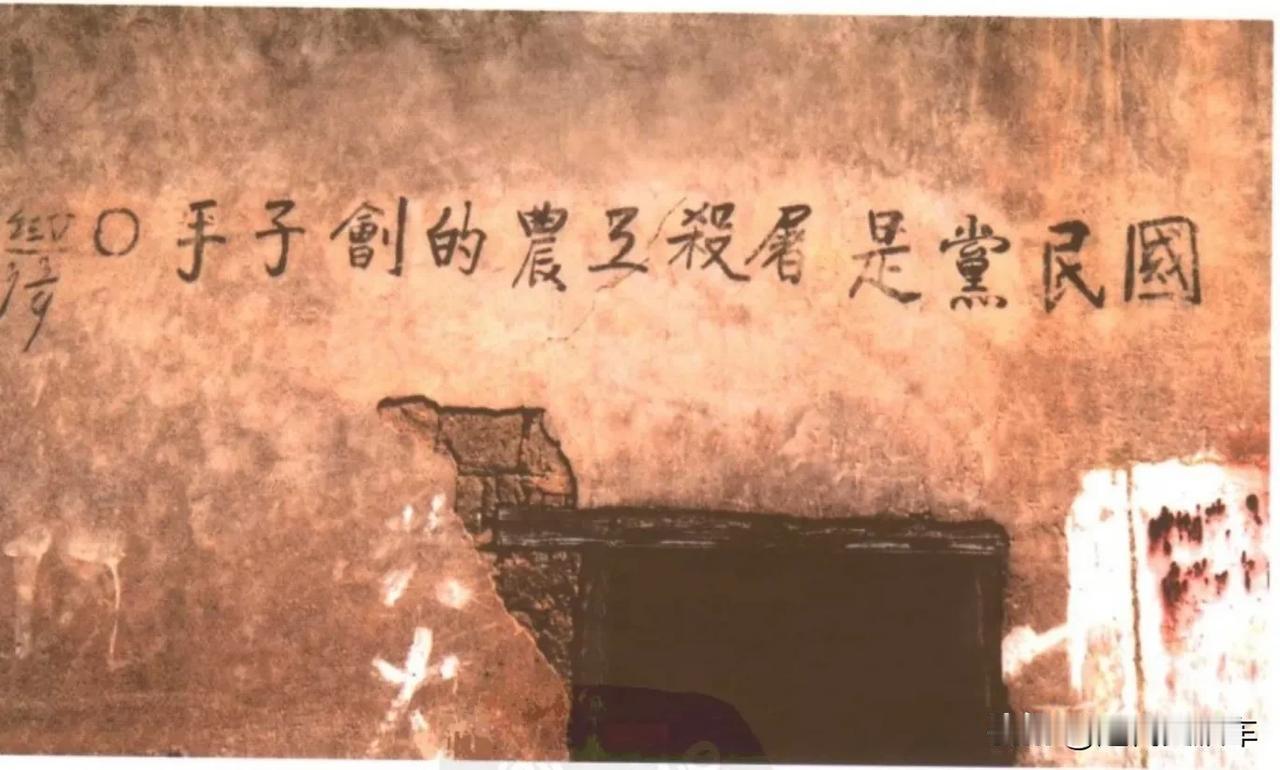 國民黨是屠殺工農的劊子手〇